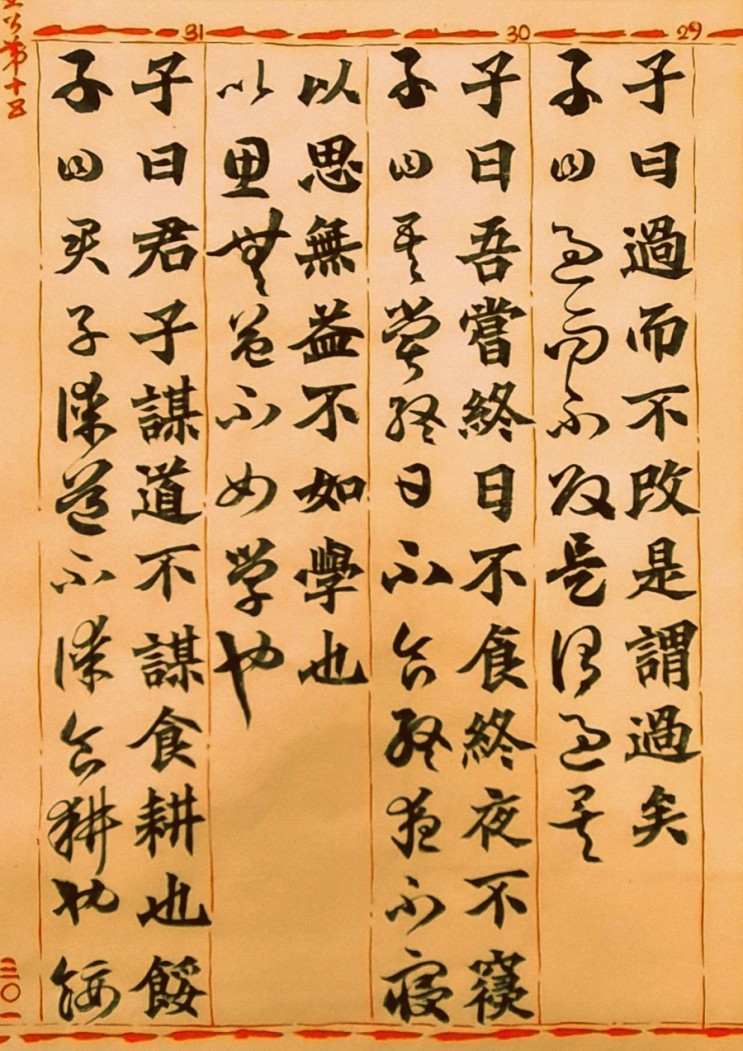 29
子曰過而不改是謂過矣
子曰過而不改是謂過矣
30
子曰吾嘗終日不食終夜不寢
子曰吾嘗終日不食終夜不寢
以思無益不如學也
以思無益不如学也
31
子曰君子謀道不謀食耕也餒
子曰君子謀道不謀食耕也餒
公第十五
三〇一